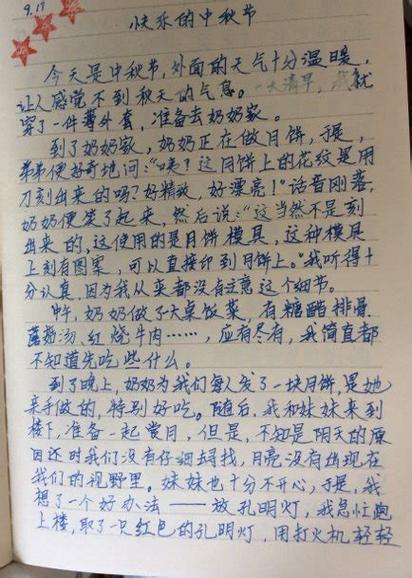 9.17
快乐的中秋节
今天是中秋节,外面的天气十分温暖,
让人感觉不到秋天的气息。一大清早,我就
穿了一件薄外套,准备去奶奶家。
到了奶奶家,奶奶正在做月饼,于是,
弟弟便好奇地问:“咦?这月饼上的花纹是用
刀刻出来的吗?好精致,好漂亮!”话音刚落,
奶奶便笑了起来,然后说:“这当然不是刻
出来的,这使用的是月饼模具,这种模具
上刻有图案,可以直接印到月饼上。”我听得十
分认真,因为我从来都没有注意这个细节。
中午,奶奶做了大桌饭菜,有糖醋排骨
蘑菇汤、红烧牛肉……,应有尽有,我简直都
不知道先吃些什么。
到了晚上,奶奶为我们每人发了一块月饼,是她
亲手做的,特别好吃。随后,我和妹妹来到
楼下,准备一起赏月,但是,不知是阴天的原
因还时我们没有仔细寻找,月亮没有出现在
我们的视野里。妹妹也十分不开心,于是,我
想了一个好办法——放孔明灯,我急忙跑
上楼,取了一只红色的孔明灯,用打火机轻轻